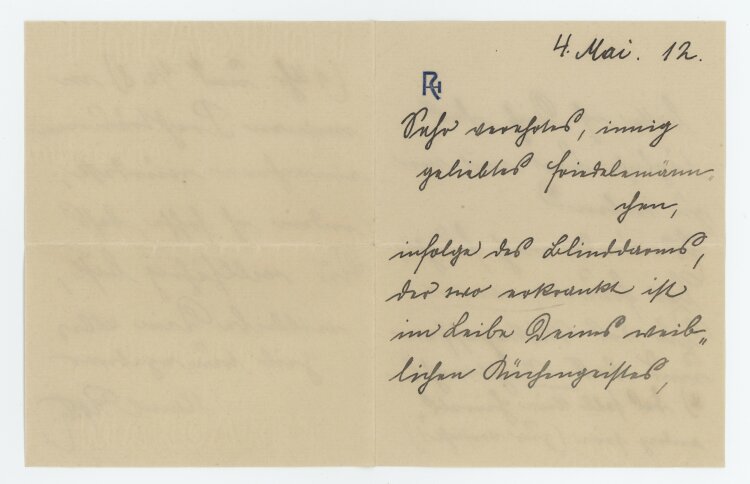 4. Mai. 12.
RH
Sehr verehrtes, innig
geliebtes Friedelemänn-
chen,
infolge des Blinddarms,
der wo erkrankt ist
im Leibe Deines weib-
lichen Küchengeistes,